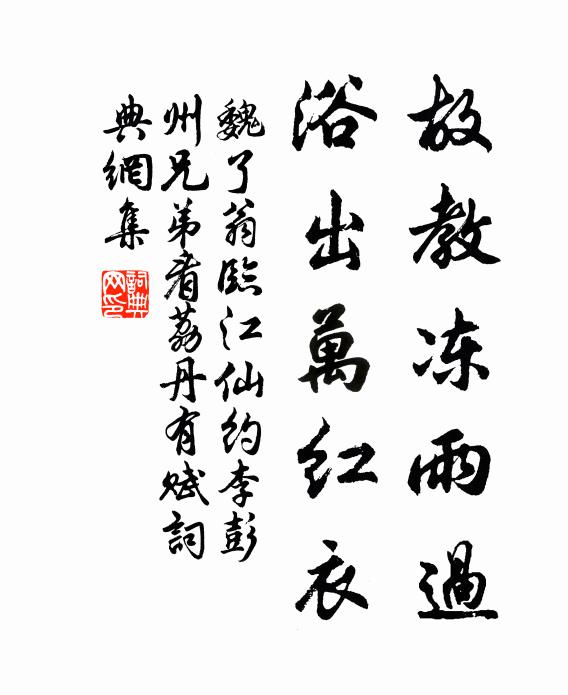 故教冻雨過
浴出萬红衣
魏了翁臨江仙约李彭
州兄弟看荔丹有赋詞
典網集
詞典
网印